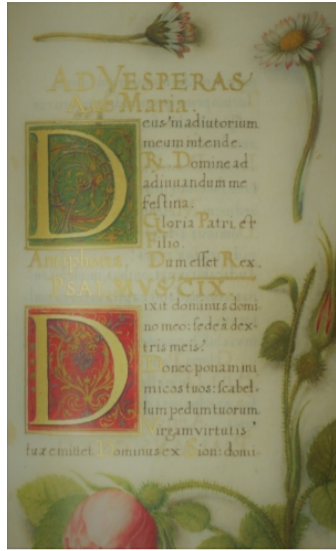 AD VESPERAS
Aue Maria.
Deus in adiutorium
meum intende.
R. Domine ad
adiuuandum me
festina.
Gloria Patri, et
Filio.
Antiphona. Dum esset Rex.
PSALMVS. CIX.
Dixit dominus domi-
no meo: sede à dex-
tris meis.
Donec ponam ini
micos tuos: scabel-
lum pedum tuorum.
Virgam virtutis
tuæ emittet Dominus ex Sion: domi-